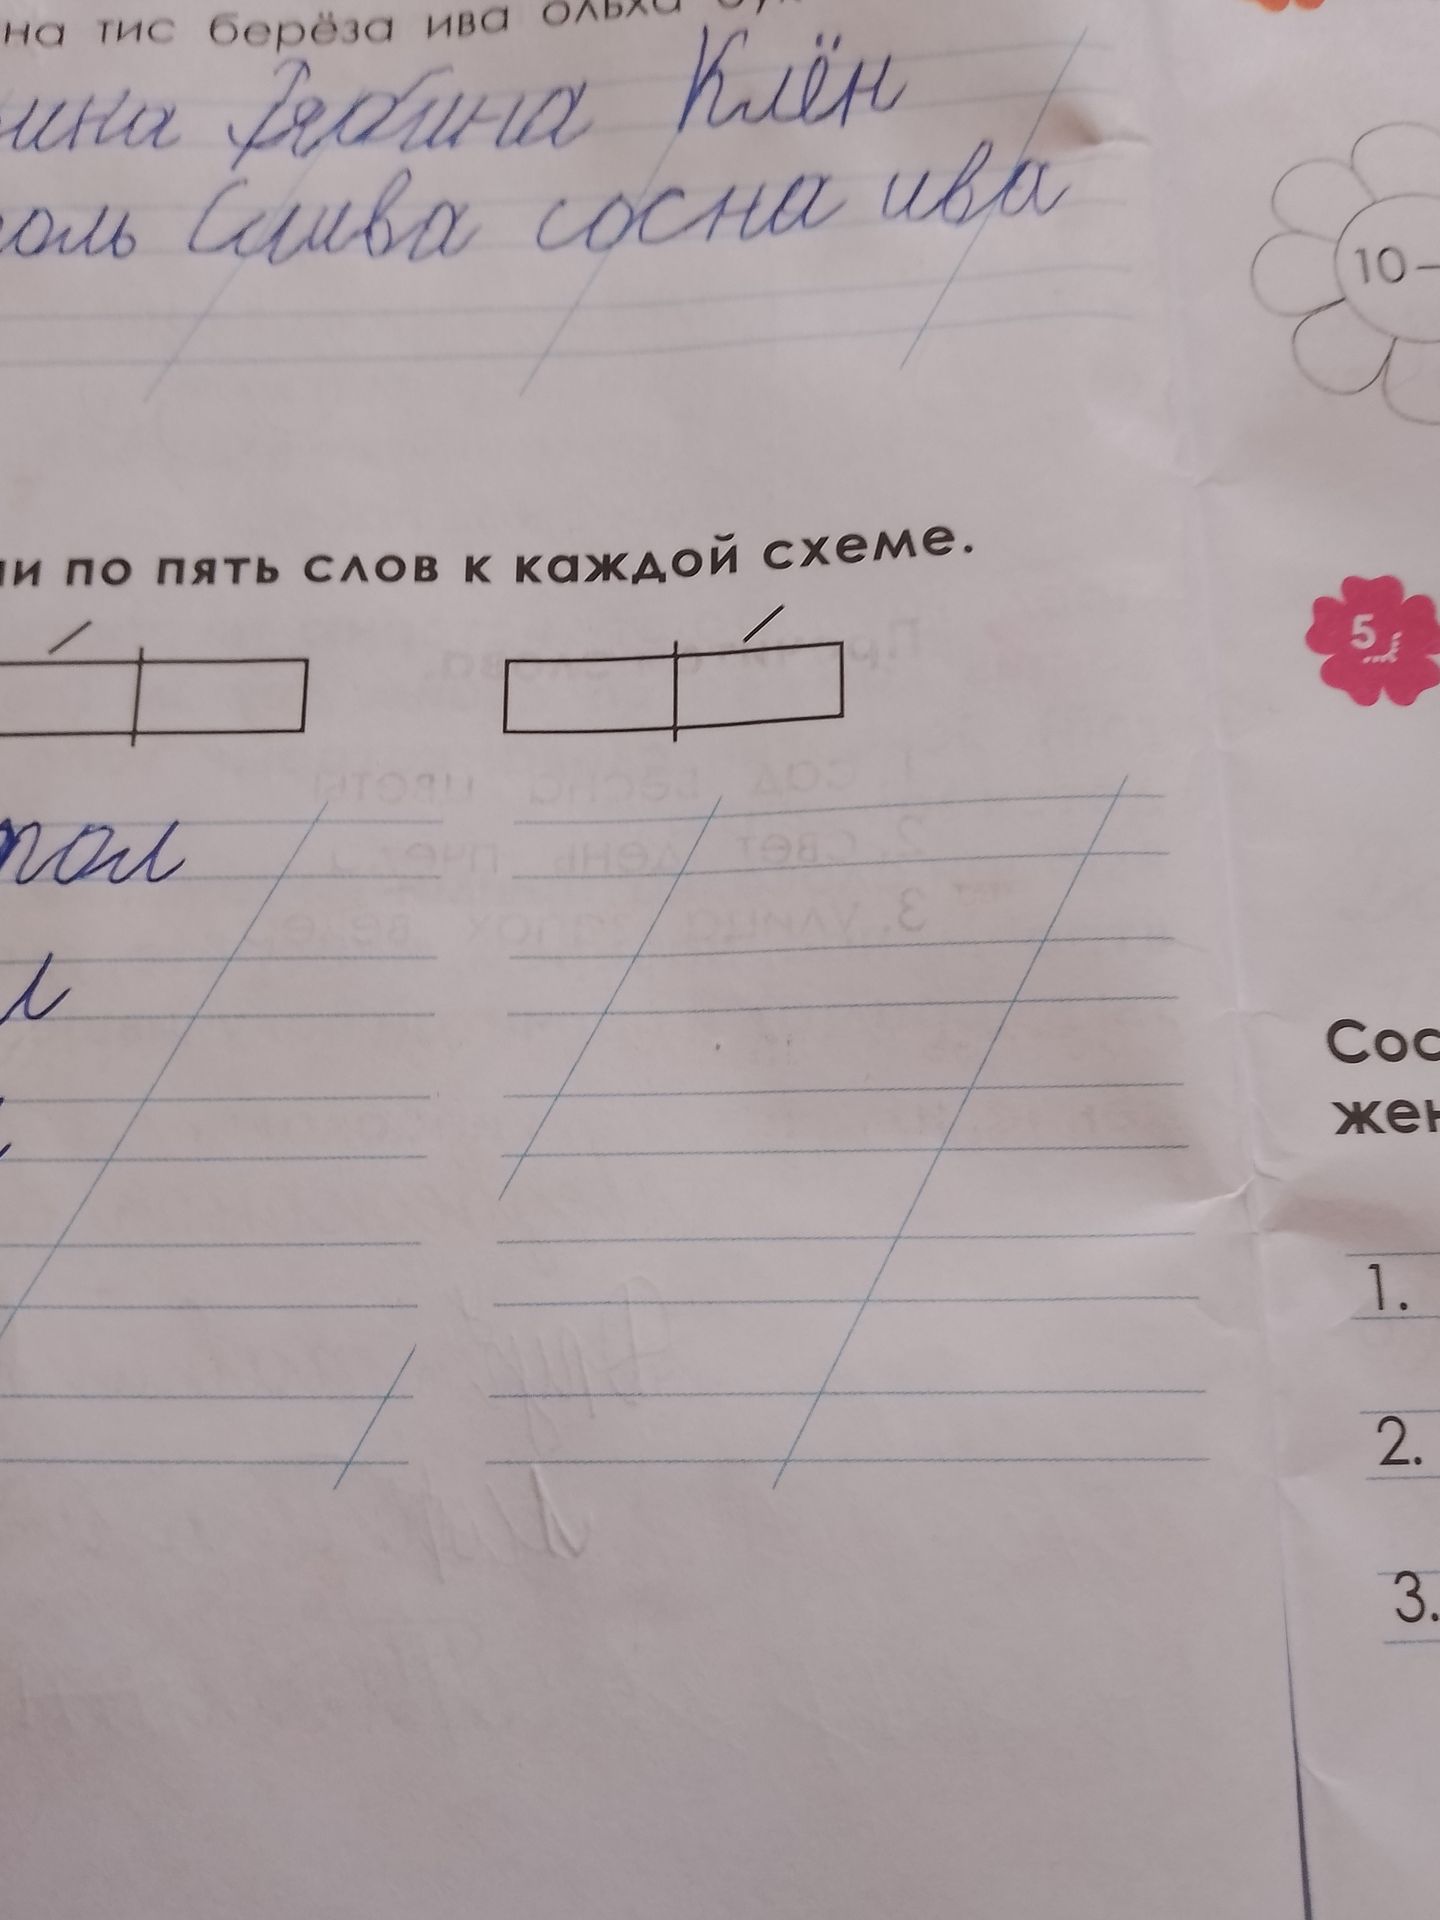 на тис берёза ива ольха
ина Рябина Клён
оль Слива сосна ива
10-
ли по пять слов к каждой схеме.
5
пол
л
Сос
жен
1.
2.
3.